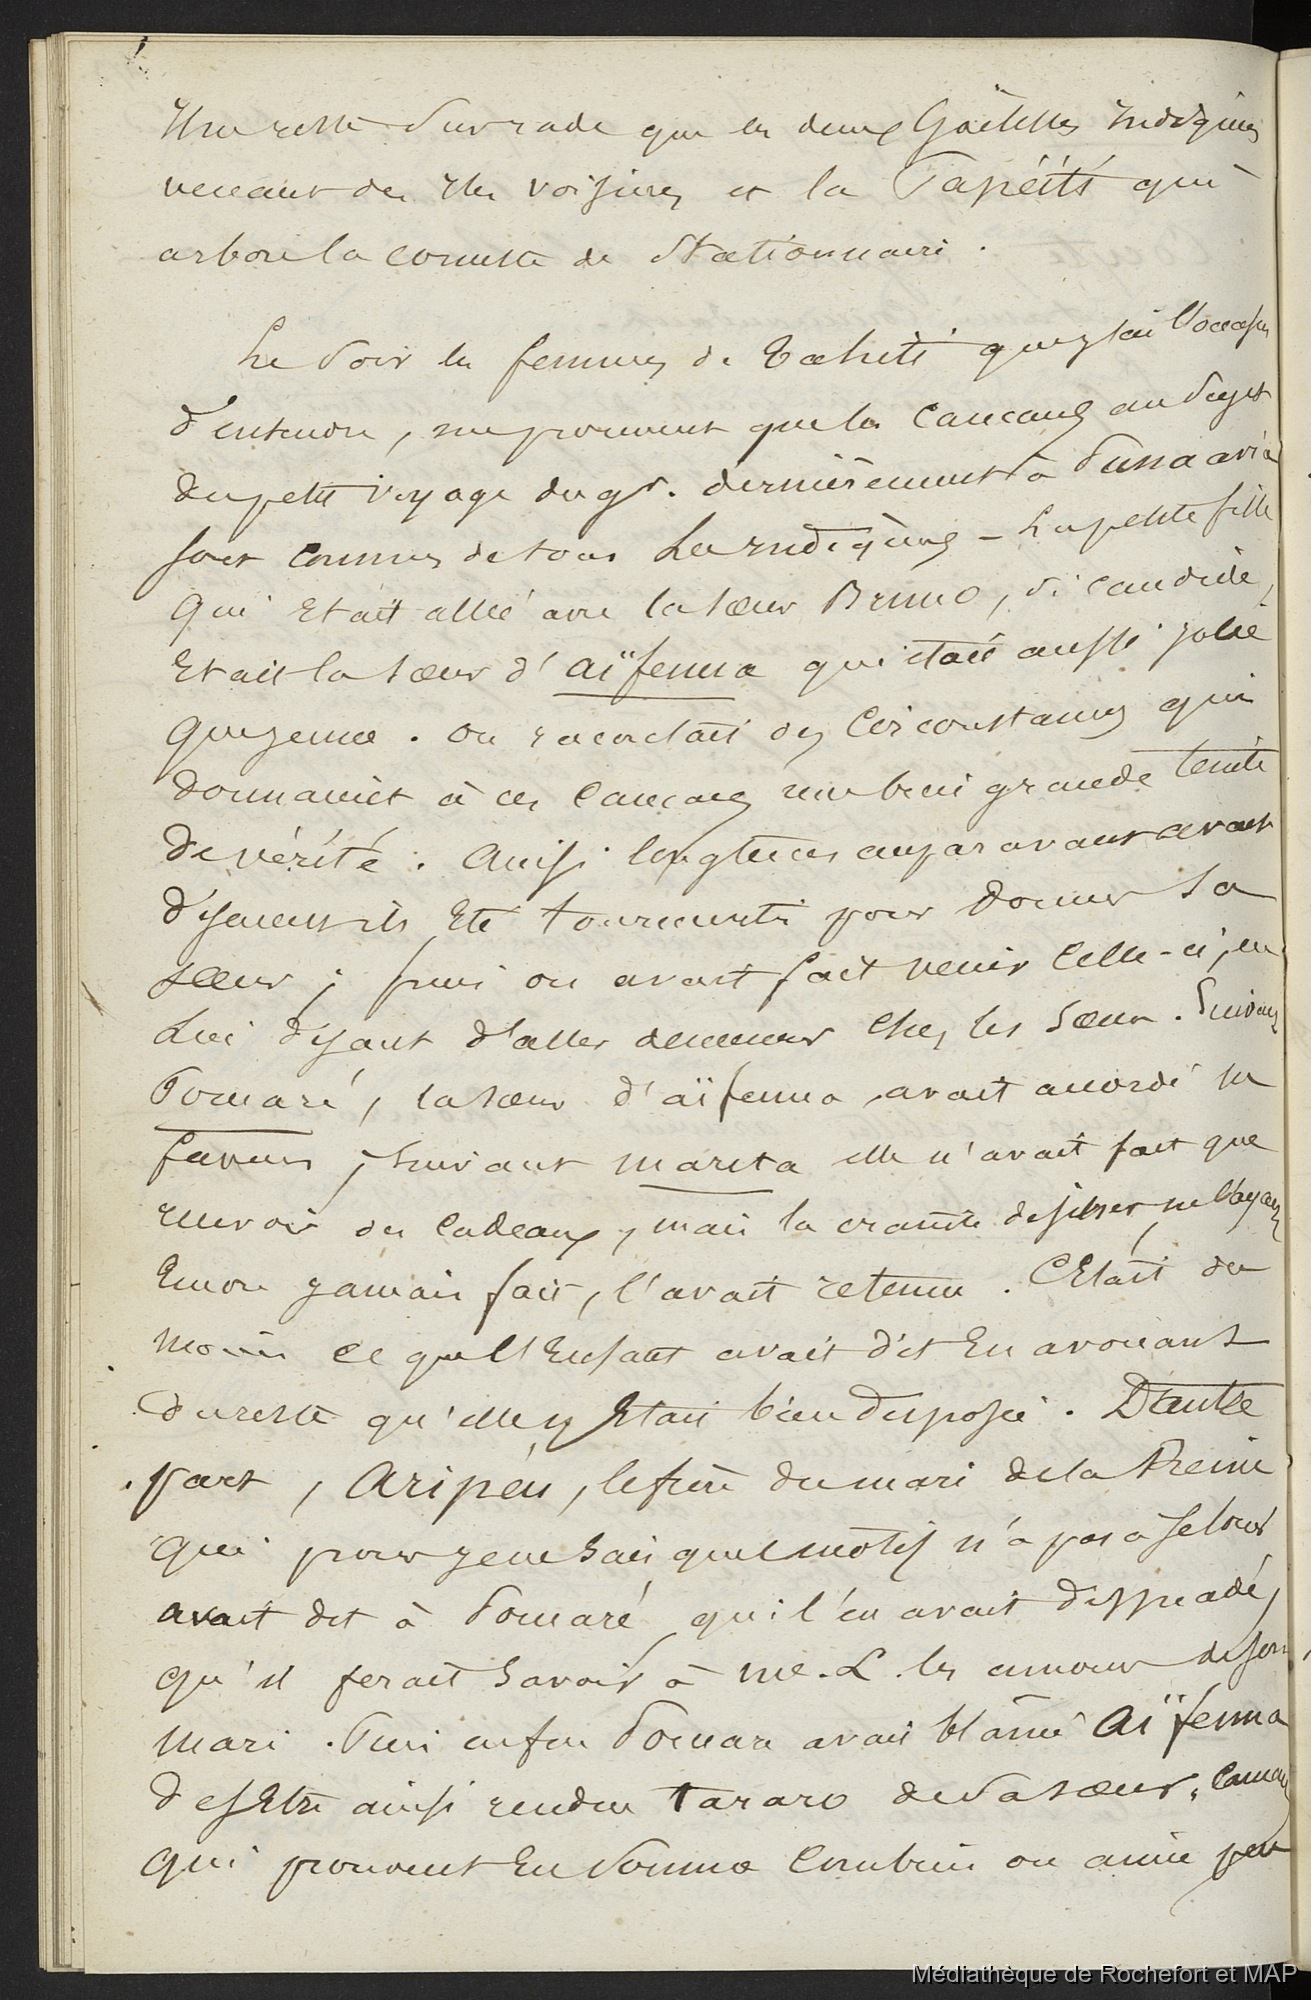 Il ne reste sur rade que les deux Goëlettes Indigènes
venant des Iles voisines et la Papéiti qui
arbore la cornette de Stationnaire.
Le Soir les femmes de Tahiti que j'ai l'occasion
d'entendre, me prouvent que les Cancans au Sujet
du petit voyage du gr. dernièrement à Punaavia
sont connus de tous Les Indigènes - La petite fille
qui était allée avec la sœur Bruno, si candide,
Etait la sœur d'Aïfenua qui était aussi jolie
que jeune. On racontait des Circonstances qui
donnaient à ces Cancans une bien grande teinte
de vérité. Ainsi longtems auparavant avait
disaient-ils été tourmenté pour donner sa
sœur ; puis on avait fait venir Celle-ci, en
Lui disant d'aller demeurer chez les Sœurs. Suivant
Pomaré, la sœur d'aïfenua avait accordé sa
faveur ; Suivant mareta elle n'avait fait que
recevoir des Cadeaux, mais la crainte de ne l'ayant
Encore jamais fait, l'avait retenue. C'Etait du
moins ce que l'Enfant avait dit En avouant
du reste qu'elle y Etait bien disposée. D'autre
part, Aripéu, le frère du mari de la Reine
qui pour je ne sais quel motif n'a pas à se louer
avait dit à Pomaré qui l'en avait dissuadé,
qu'il ferait savoir à me. L. les amours de son
mari. Puis enfin Pomaré avait blâmé Aïfenua
de s'Etre ainsi rendu Tararo de Sa sœur. Cancans
qui prouvent En Somme Combien on aime peu
Médiathèque de Rochefort et MAP